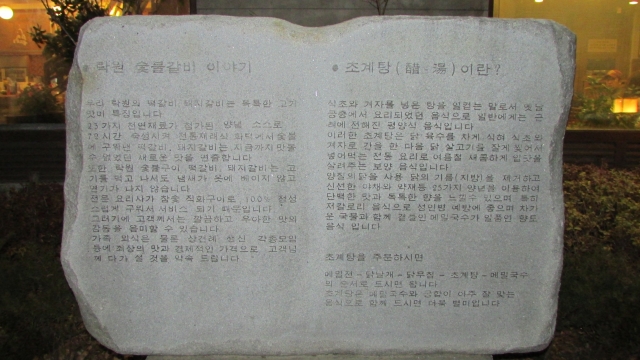 학원 숯불갈비 이야기
우리 학원의 떡갈비, 돼지갈비는 독특한 고기
맛이 특징입니다.
25가지 천연재료가 첨가된 양념 소스로
72시간 숙성시켜 전통재래식 화덕에서 숯불
에 구워낸 떡갈비, 돼지갈비는 지금까지 맛볼
수 없었던 새로운 맛을 연출합니다.
또한 학원 숯불구이 떡갈비, 돼지갈비는 고
기를 먹고 나서도 냄새가 옷에 베이지 않고
연기가 나지 않습니다.
전문 요리사가 참숯 직화구이로 100% 정성
스럽게 구워서 서비스 되기 때문입니다.
그러기에 고객께서는 깔끔하고 우아한 맛의
감동을 음미할 수 있습니다.
가족 외식은 물론 상견례 생신 각종모임
등에 최상의 맛과 경제적인 가격으로 고객님
께 다가 설 것을 약속 드립니다.
조계탕(醋·湯)이란?
식초와 겨자를 넣은 탕을 일컫는 말로서 옛날
궁중에서 요리되었던 음식으로 일반에게는 근
래에 전해진 평양식 음식입니다.
이러한 조계탕은 닭 육수를 차게 식혀 식초와
겨자로 간을 한 다음 닭 살고기를 잘게 찢어서
넣어먹는 전통 요리로 여름철 새콤하게 입맛을
살려주는 보양 음식입니다.
양질의 닭을 사용 닭의 기름(지방)을 제거하고
신선한 야채와 약재등 25가지 양념을 이용하여
담백한 맛과 독특한 향을 느낄수 있으며 특히
저칼로리 음식으로 성인병 예방에 좋으며 차가
운 국물과 함께 곁들인 메밀국수가 일품인 향토
음식 입니다
조계탕을 주문하시면
메밀전-닭날개-닭무침-조계탕-메밀국수
의 순서로 드시면 됩니다
조계탕은 메밀국수와 궁합이 아주 잘 맞는
음식으로 함께 드시면 더욱 별미입니다